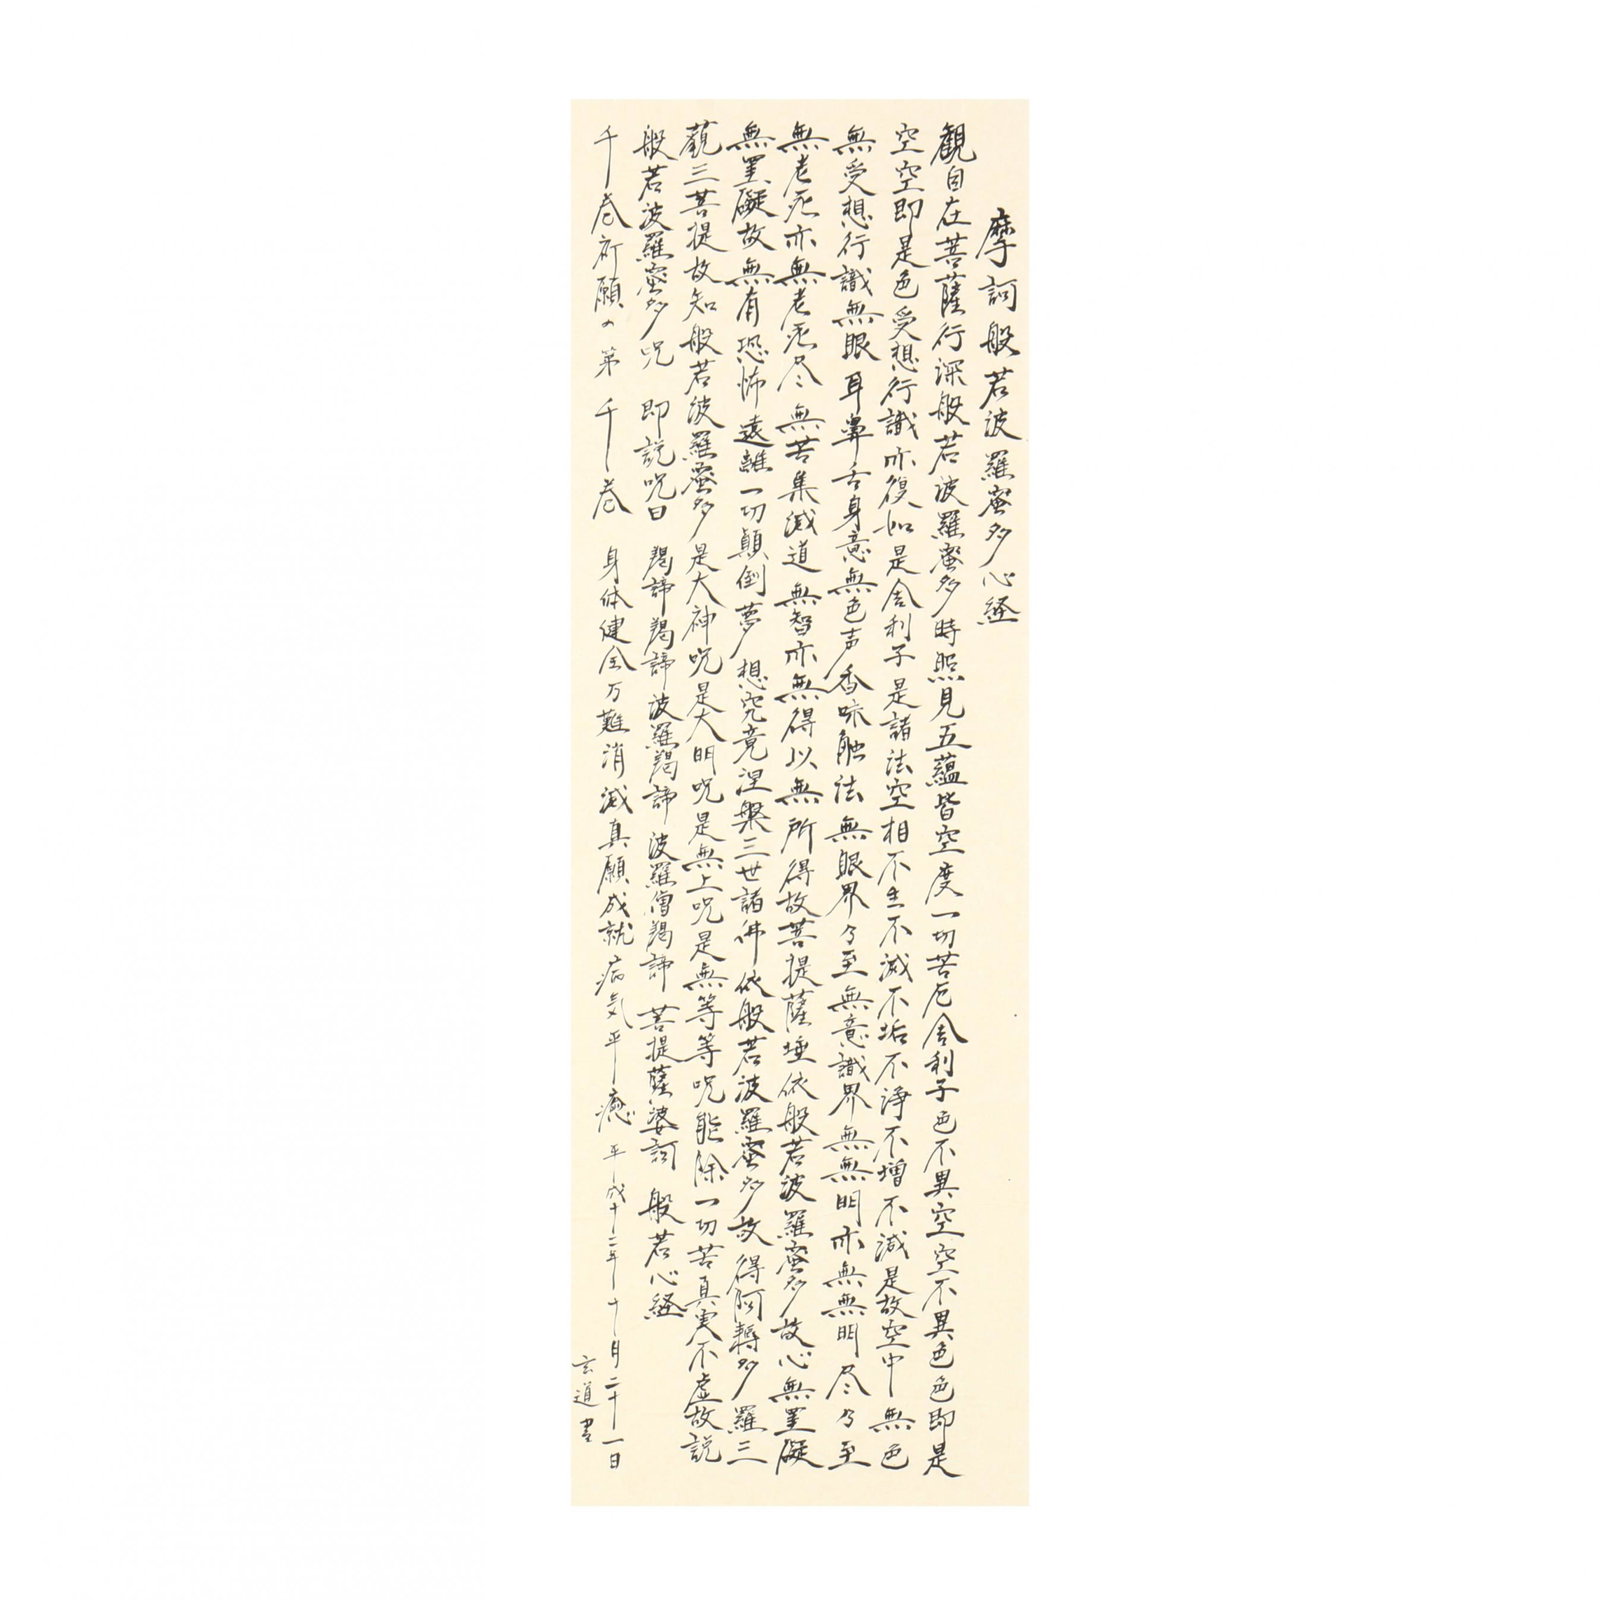 摩訶般若波羅蜜多心経
観自在菩薩行深般若波羅蜜多時照見五蘊皆空度一切苦厄舎利子色不異空空不異色色即是
空空即是色受想行識亦復如是舎利子是諸法空相不生不滅不垢不浄不増不減是故空中無色
無受想行識無眼耳鼻舌身意無色声香味触法無眼界乃至無意識界無無明亦無無明尽乃至
無老死亦無老死尽無苦集滅道無智亦無得以無所得故菩提薩埵依般若波羅蜜多故心無罣礙
無罣礙故無有恐怖遠離一切顛倒夢想究竟涅槃三世諸仏依般若波羅蜜多故得阿耨多羅三
藐三菩提故知般若波羅蜜多是大神呪是大明呪是無上呪是無等等呪能除一切苦真実不虚故説
般若波羅蜜多呪 即説呪曰 羯諦羯諦波羅羯諦 波羅僧羯諦 菩提薩婆訶 般若心経
千巻祈願の第千巻 身体健全万難消滅真願成就病気平癒 平成十二年十月二十一日
玄道書